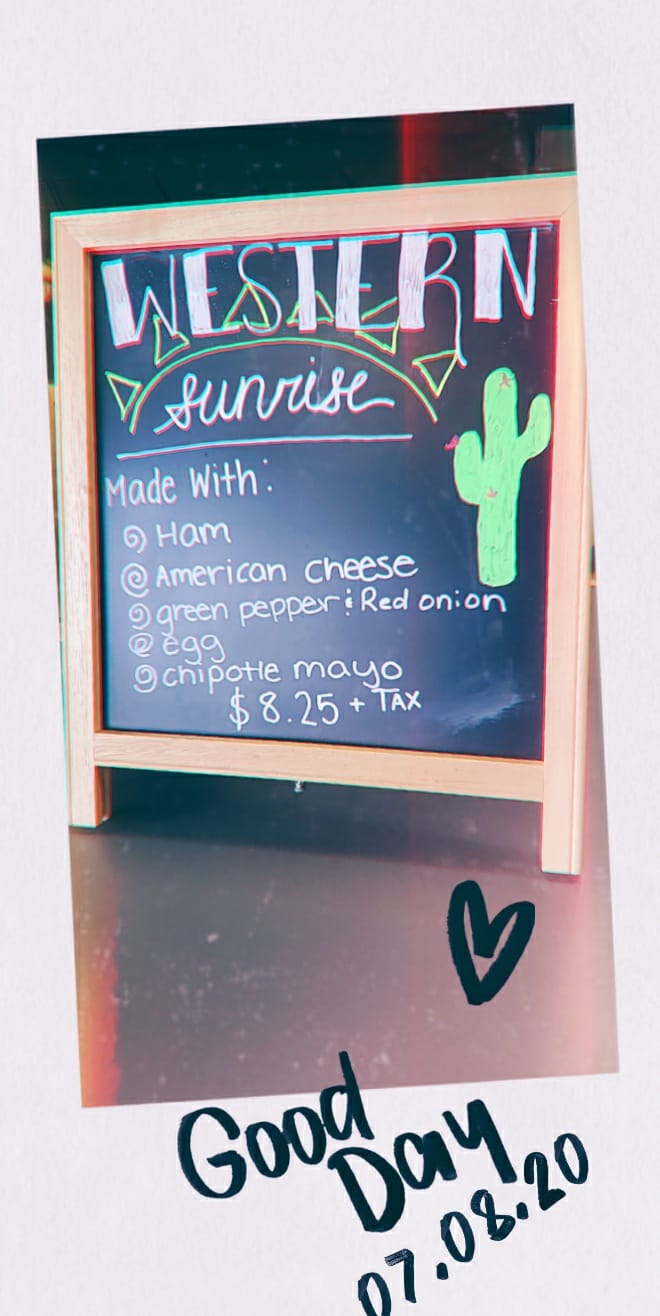 WESTERN
sunrise
Made With:
Ham
American cheese
green pepper & Red onion
egg
chipotle mayo
$8.25 + TAX
Good
Day
07.08.20